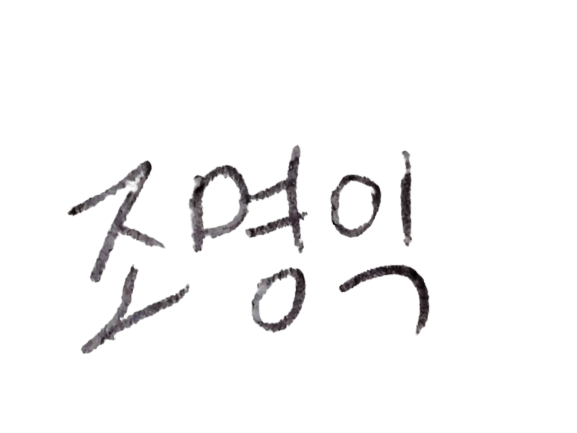 조명익